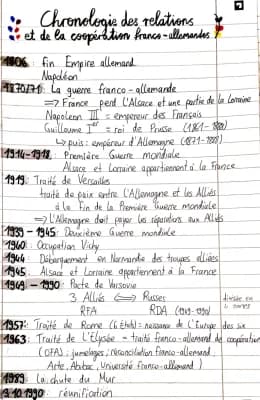 Chronologie des relations
et de la coopération franco-allemandes
1806: fin Empire allemand
Napoléon
1870/71: La guerre franco-allemande
=> France perd l'Alsace et une partie de la Lorraine
Napoleon III = empereur des Français
Guillaume Ier = roi de Prusse (1861-1888)
↳ puis: empéreur d'Allemagne (1871-1888)
1914-1918: Première Guerre mondiale
Alsace et Lorraine appartiennent à la France
1919: Traité de Versailles
traité de paix entre l'Allemagne et les Alliés
à la fin de la Première Guerre mondiale
=> L'Allemagne doit payer les réparations aux Alliés
1939-1945: Deuxième Guerre mondiale
1940: Occupation Vichy
1944: Débarquement en Normandie des troupes alliées
1945: Alsace et Lorraine appartiennent à la France
1949-1990: Pacte de Varsovie
3 Alliés <=> Russes
divisée en
RFA RDA (1949-1990)
4 zones
1957: Traité de Rome (6 états) = naissance de l'Europe des six
1963: Traité de L'Elysée - traité franco-allemand de coopération
(OFAJ; jumelages; réconciliation franco-allemand,
Arte, Abibac, Université franco-allemand)
1989: La chute du Mur
3.10.1990: réunification